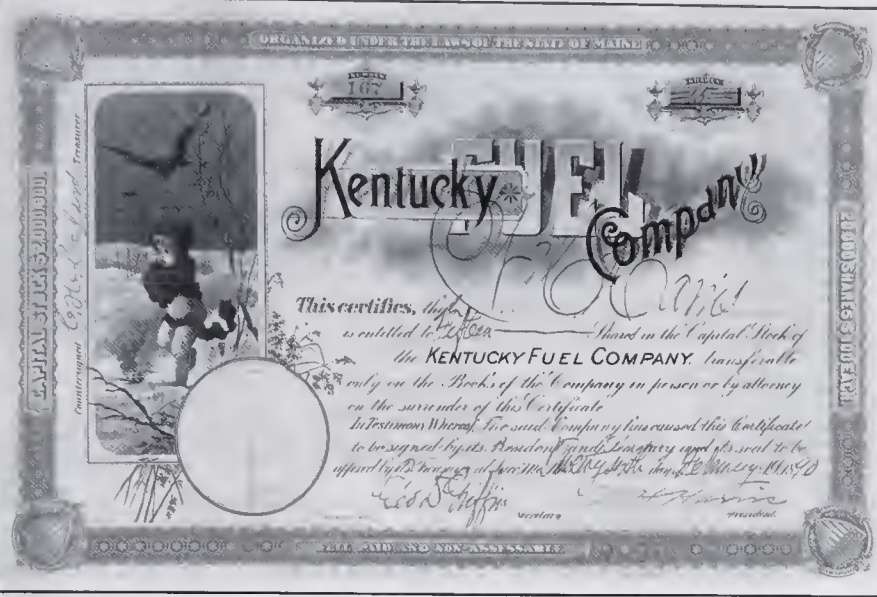 ORGANIZED UNDER THE LAWS OF THE STATE OF MAINE
NUMBER
167
SHARES
15
Kentucky FUEL Company
CAPITAL STOCK $2,000,000.
Countersigned Treasurer
20000 SHARES $100 EACH
This certifies, that
is entitled to fifteen Shares in the Capital Stock of
the KENTUCKY FUEL COMPANY. transferable
only on the Books of the Company in person or by attorney
on the surrender of this Certificate
In Testimony Whereof, The said Company has caused this Certificate
to be signed by its President and Secretary and its seal to be
affixed by its Treasurer at this day of February 1890
Secretary
President.
FULL PAID AND NON-ASSESSABLE